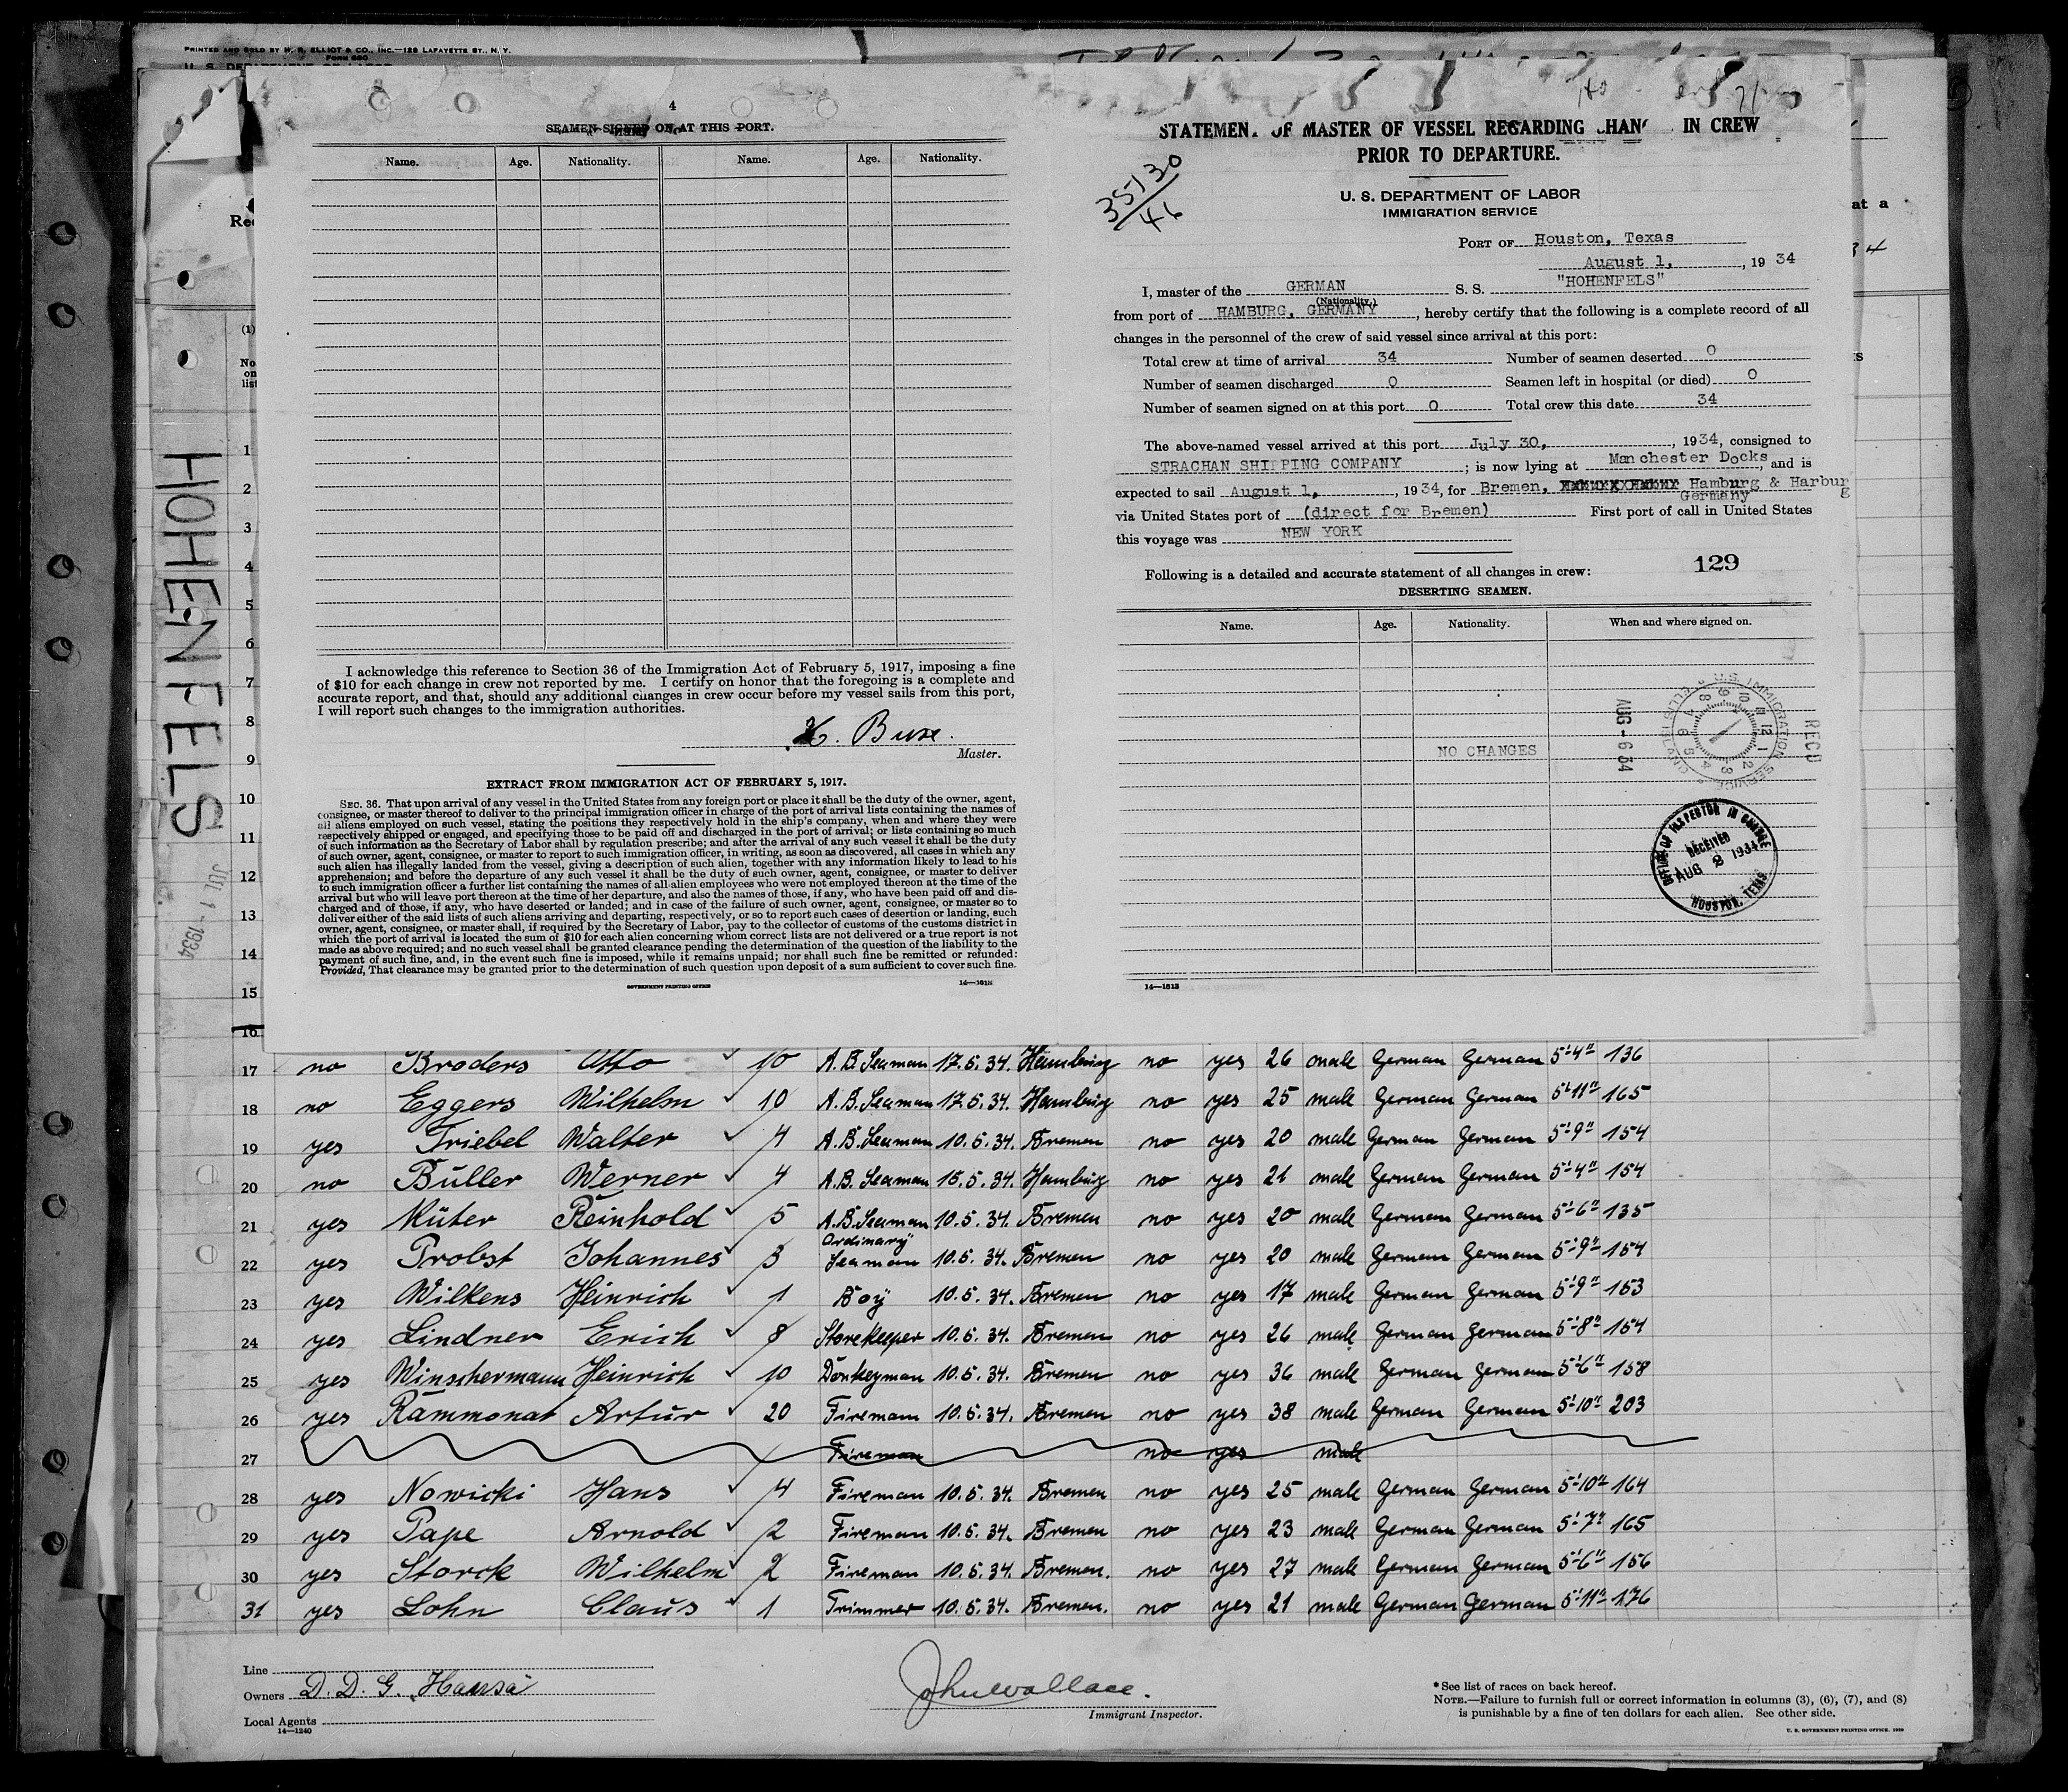 PRINTED AND SOLD BY H. R. ELLIOT & CO., INC.—129 LAFAYETTE ST., N. Y.
FORM 680
U. S. DEPARTMENT OF LABOR
4
SEAMEN SIGNED ON AT THIS PORT.
Name. Age. Nationality. Name. Age. Nationality.
I acknowledge this reference to Section 36 of the Immigration Act of February 5, 1917, imposing a fine
of $10 for each change in crew not reported by me. I certify on honor that the foregoing is a complete and
accurate report, and that, should any additional changes in crew occur before my vessel sails from this port,
I will report such changes to the immigration authorities.
H. Buse.
Master.
EXTRACT FROM IMMIGRATION ACT OF FEBRUARY 5, 1917.
SEC. 36. That upon arrival of any vessel in the United States from any foreign port or place it shall be the duty of the owner, agent,
consignee, or master thereof to deliver to the principal immigration officer in charge of the port of arrival lists containing the names of
all aliens employed on such vessel, stating the positions they respectively hold in the ship's company, when and where they were
respectively shipped or engaged, and specifying those to be paid off and discharged in the port of arrival; or lists containing so much
of such information as the Secretary of Labor shall by regulation prescribe; and after the arrival of any such vessel it shall be the duty
of such owner, agent, consignee, or master to report to such immigration officer, in writing, as soon as discovered, all cases in which any
such alien has illegally landed from the vessel, giving a description of such alien, together with any information likely to lead to his
apprehension; and before the departure of any such vessel it shall be the duty of such owner, agent, consignee, or master to deliver
to such immigration officer a further list containing the names of all alien employees who were not employed thereon at the time of the
arrival but who will leave port thereon at the time of her departure, and also the names of those, if any, who have been paid off and dis-
charged and of those, if any, who have deserted or landed; and in case of the failure of such owner, agent, consignee, or master so to
deliver either of the said lists of such aliens arriving and departing, respectively, or so to report such cases of desertion or landing, such
owner, agent, consignee, or master shall, if required by the Secretary of Labor, pay to the collector of customs of the customs district in
which the port of arrival is located the sum of $10 for each alien concerning whom correct lists are not delivered or a true report is not
made as above required; and no such vessel shall be granted clearance pending the determination of the question of the liability to the
payment of such fine, and, in the event such fine is imposed, while it remains unpaid; nor shall such fine be remitted or refunded:
Provided, That clearance may be granted prior to the determination of such question upon deposit of a sum sufficient to cover such fine.
GOVERNMENT PRINTING OFFICE 14—1613
STATEMENT OF MASTER OF VESSEL REGARDING CHANG IN CREW
PRIOR TO DEPARTURE.
35130/46
U. S. DEPARTMENT OF LABOR
IMMIGRATION SERVICE
PORT OF Houston, Texas
August 1, , 19 34
I, master of the GERMAN S. S. "HOHENFELS"
(Nationality.)
from port of HAMBURG, GERMANY, hereby certify that the following is a complete record of all
changes in the personnel of the crew of said vessel since arrival at this port:
Total crew at time of arrival 34 Number of seamen deserted 0
Number of seamen discharged 0 Seamen left in hospital (or died) 0
Number of seamen signed on at this port 0 Total crew this date 34
The above-named vessel arrived at this port July 30, , 1934, consigned to
STRACHAN SHIPPING COMPANY ; is now lying at Manchester Docks, and is
expected to sail August 1, , 1934, for Bremen, Hamburg & Harburg
Germany
via United States port of (direct for Bremen) First port of call in United States
this voyage was NEW YORK
129
Following is a detailed and accurate statement of all changes in crew:
DESERTING SEAMEN.
Name. Age. Nationality. When and where signed on.
NO CHANGES
RECD
U.S. IMMIGRATION SERVICE
AUG - 6 34
OFFICE OF INSPECTOR IN CHARGE
RECEIVED
AUG 2 1934
HOUSTON, TEXAS
14—1613
HOHENFELS
JUL 1 - 1934
(1)
No
on
list
1
2
3
4
5
6
7
8
9
10
11
12
13
14
15
16
17 no Broders Otto 10 A.B. Seaman 17.5.34. Hamburg no yes 26 male German German 5'-4" 136
18 no Eggers Wilhelm 10 A.B. Seaman 17.5.34. Hamburg no yes 25 male German German 5'-11" 165
19 yes Triebel Walter 4 A.B. Seaman 10.5.34. Bremen no yes 20 male German German 5'-9" 154
20 no Büller Werner 4 A.B. Seaman 15.5.34. Hamburg no yes 21 male German German 5'-4" 154
21 yes Müter Reinhold 5 A.B. Seaman 10.5.34. Bremen no yes 20 male German German 5'-6" 135
22 yes Probst Johannes 3 Ordinary Seaman 10.5.34. Bremen no yes 20 male German German 5'-9" 154
23 yes Wilkens Heinrich 1 Boy 10.5.34. Bremen no yes 17 male German German 5'-9" 153
24 yes Lindner Erich 8 Storekeeper 10.5.34. Bremen no yes 26 male German German 5'-8" 154
25 yes Winschermann Heinrich 10 Donkeyman 10.5.34. Bremen no yes 36 male German German 5'-6" 158
26 yes Rammonat Artur 20 Fireman 10.5.34. Bremen no yes 38 male German German 5'-10" 203
27 Fireman no yes male
28 yes Nowicki Hans 4 Fireman 10.5.34. Bremen no yes 25 male German German 5'-10" 164
29 yes Pape Arnold 2 Fireman 10.5.34. Bremen no yes 23 male German German 5'-7" 165
30 yes Storck Wilhelm 2 Fireman 10.5.34. Bremen. no yes 27 male German German 5'-6" 156
31 yes Lohn Claus 1 Trimmer 10.5.34. Bremen. no yes 21 male German German 5'-11" 176
Line
Owners D. D. G. „Hansa"
Local Agents
14—1240
John Wallace.
Immigrant Inspector.
*See list of races on back hereof.
NOTE.—Failure to furnish full or correct information in columns (3), (6), (7), and (8)
is punishable by a fine of ten dollars for each alien. See other side.
U. S. GOVERNMENT PRINTING OFFICE.